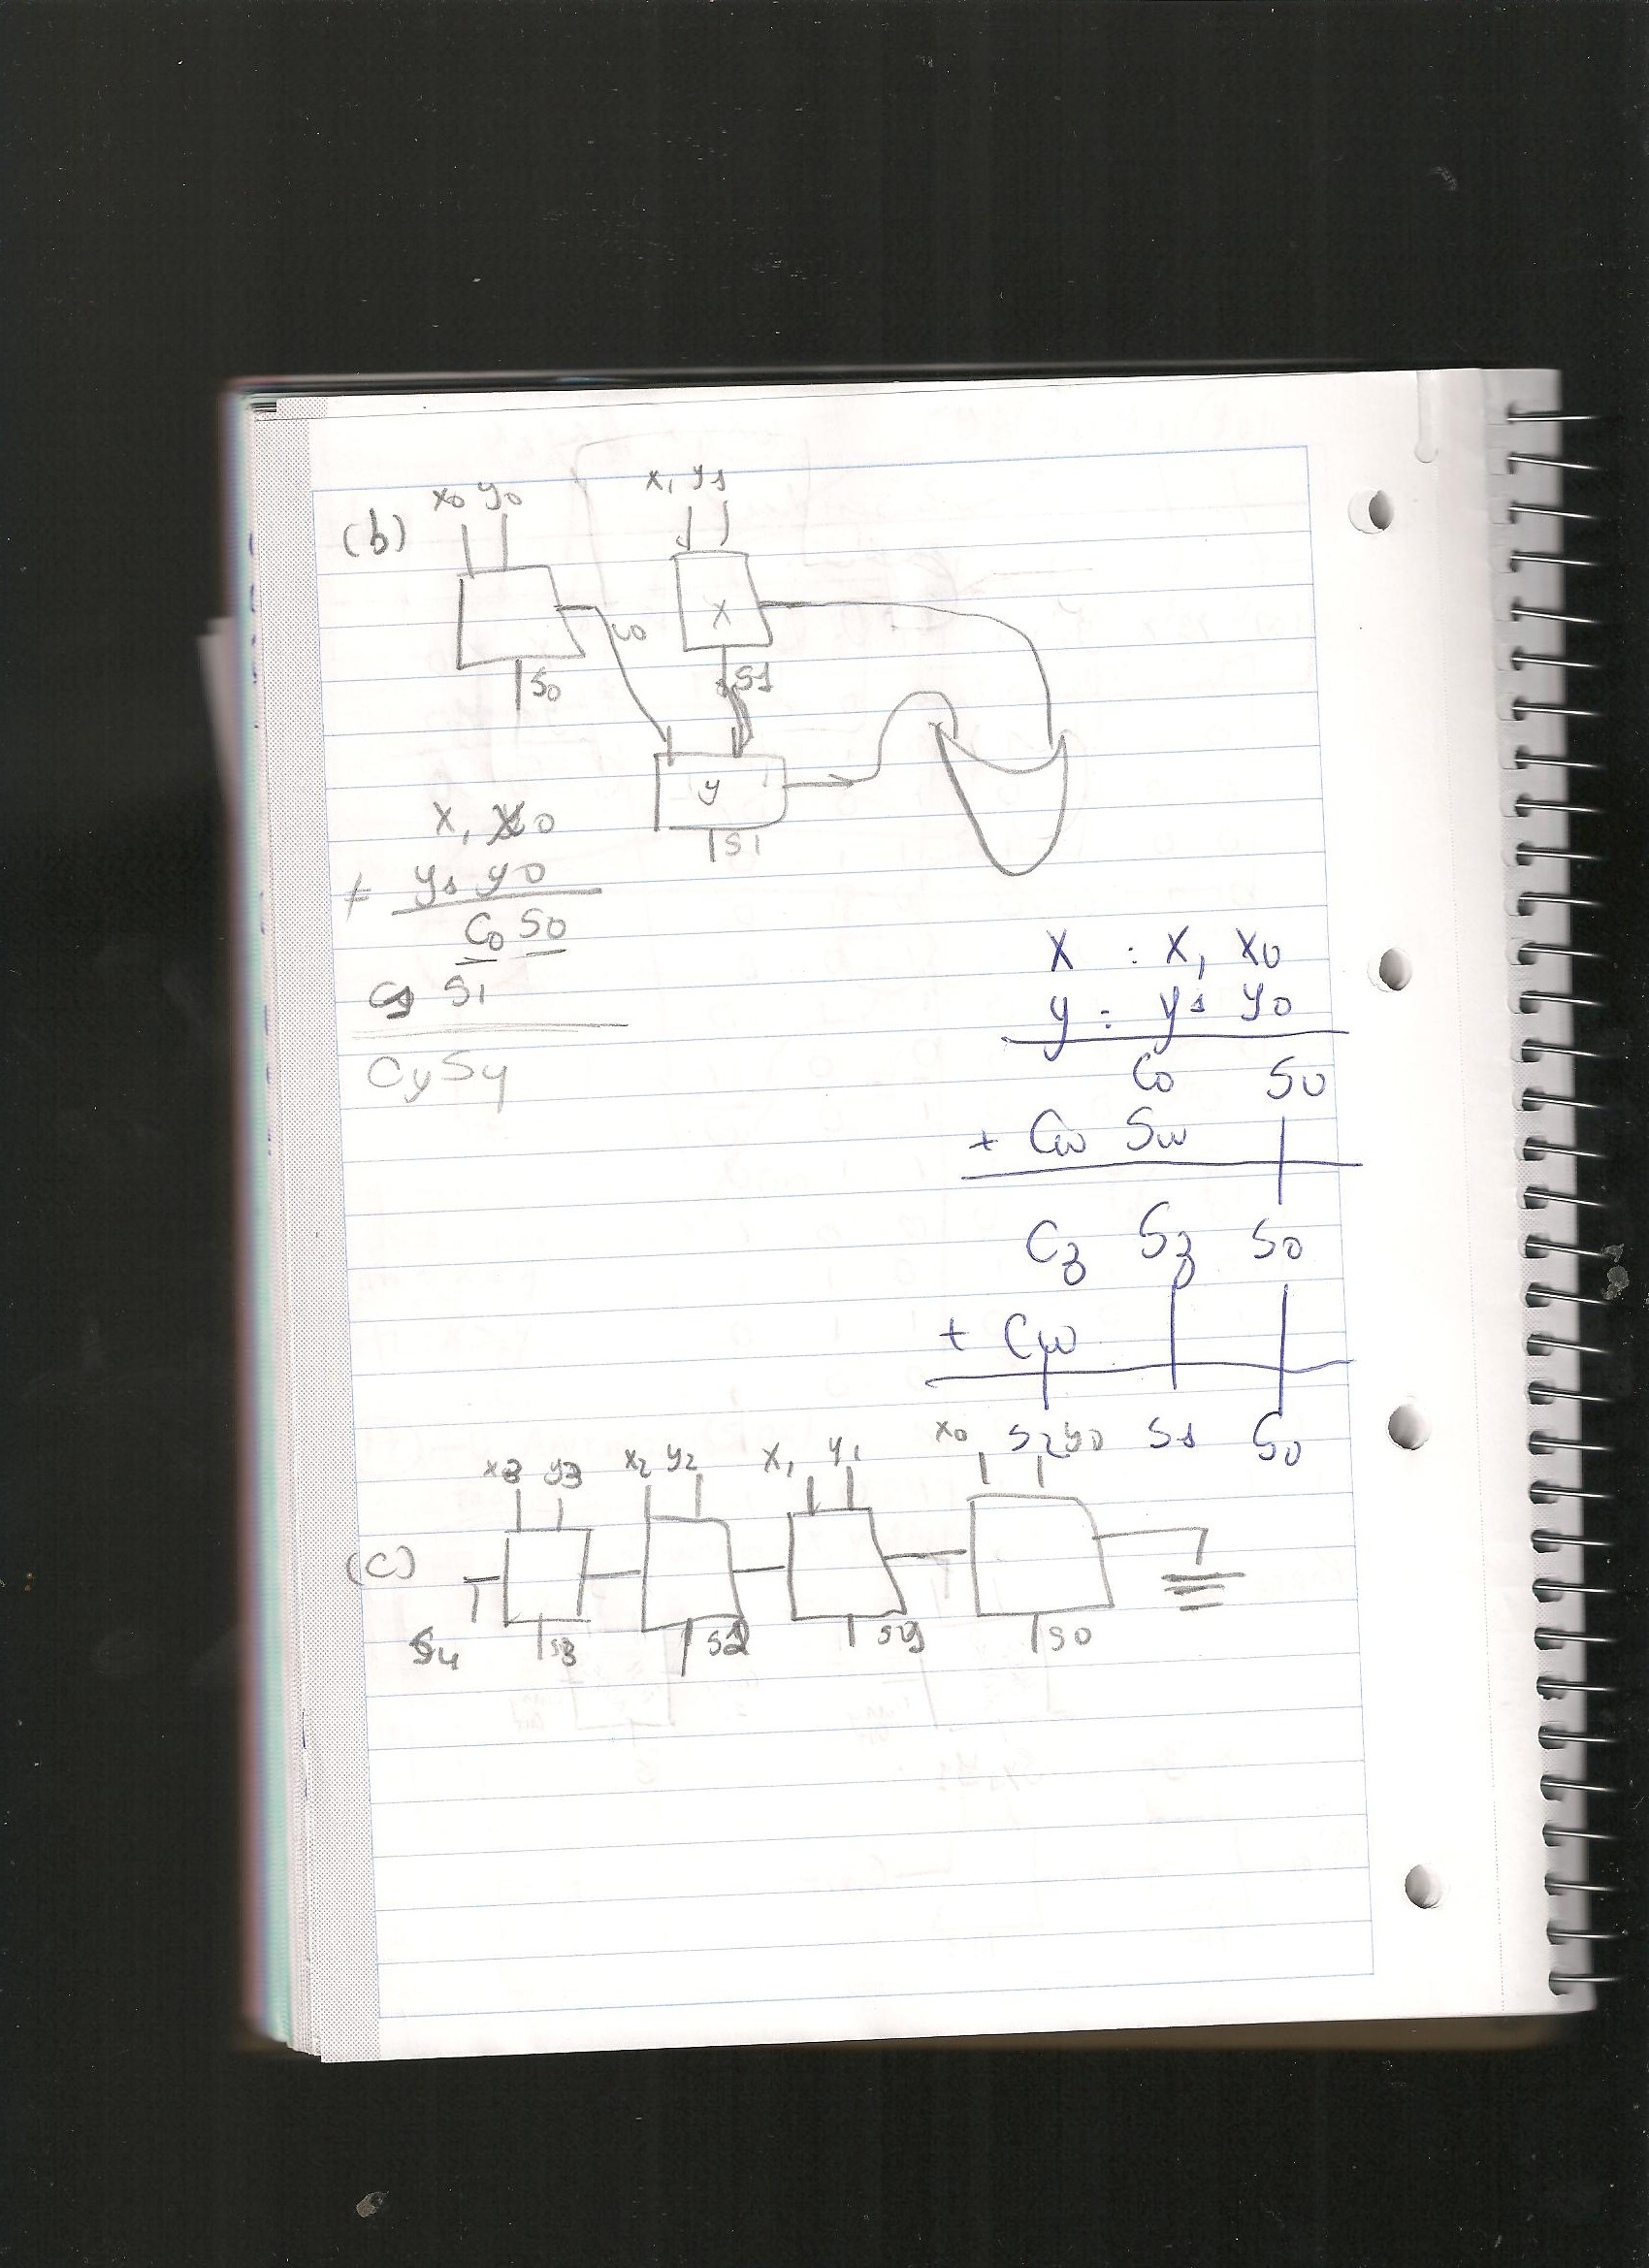 x0 y0
x1 y1
(b)
c0
x
S0
S1
y
S1
x1 x0
+ y1 y0
C0 S0
S1
Cy Sy
X : X1 X0
y : y1 y0
C0 S0
+ Cw Sw
C3 S3 S0
+ Cw
S2 S1 S0
x3 y3 x2 y2 x1 y1 x0 y0
(C)
S4 S3 S2 S1 S0